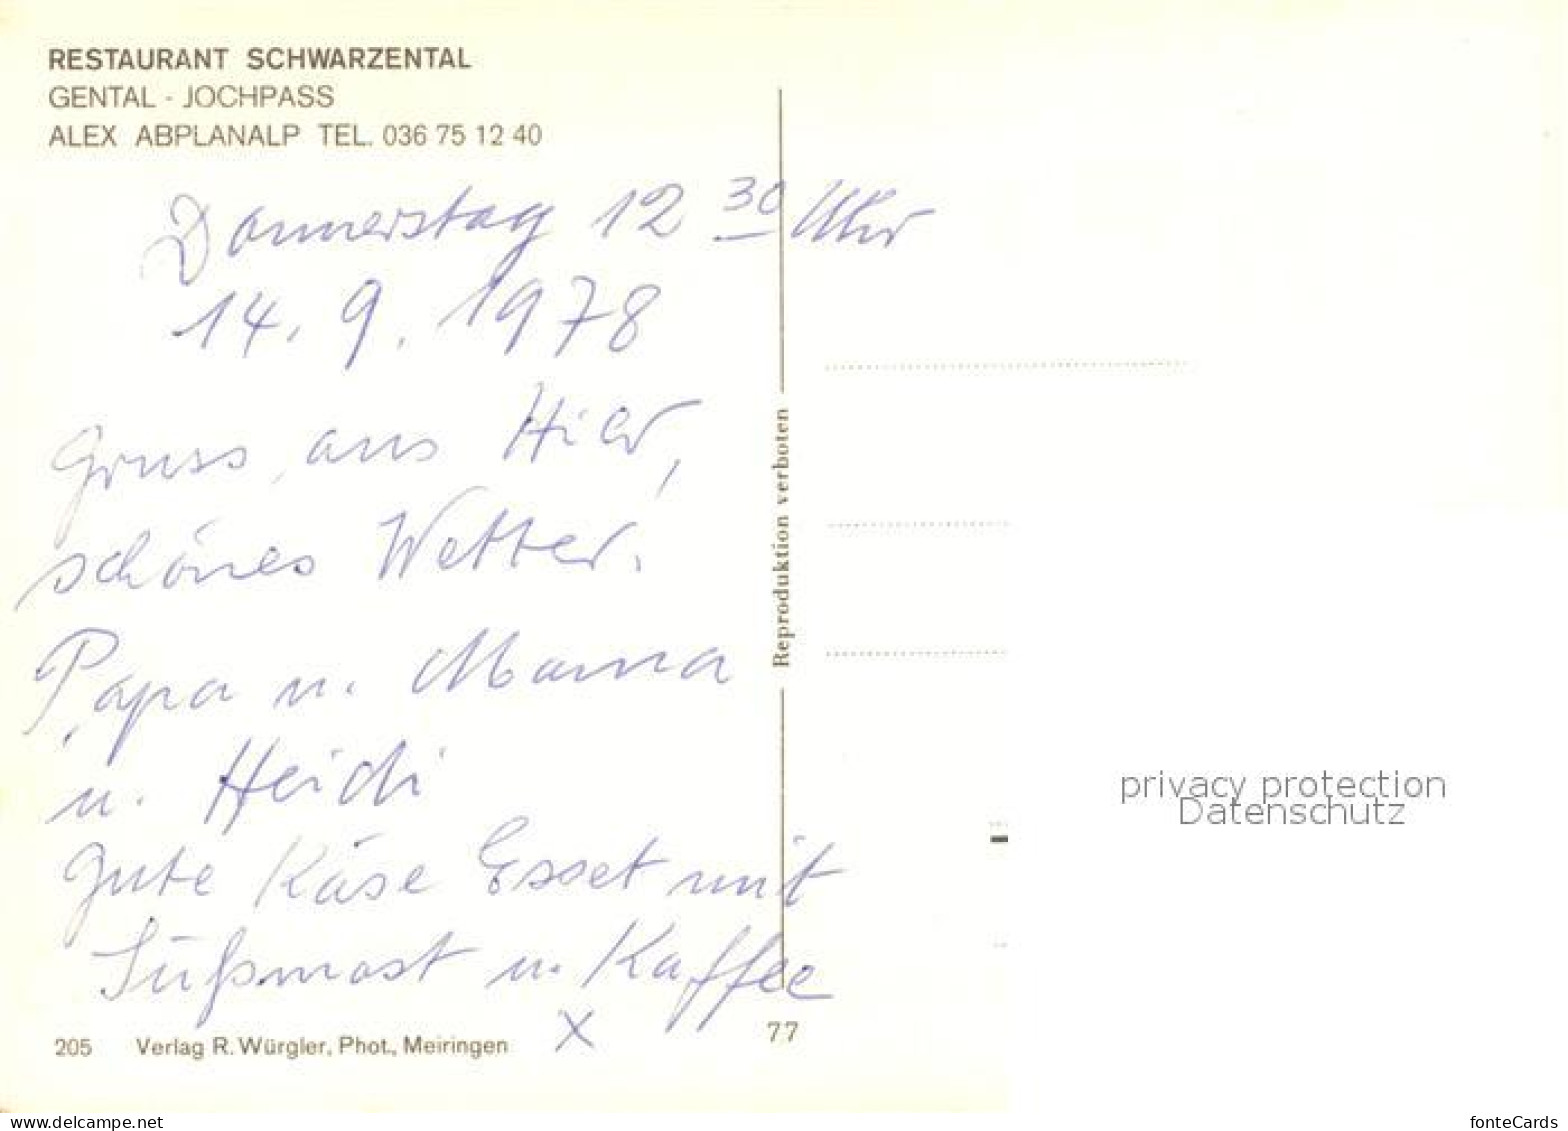 RESTAURANT SCHWARZENTAL
GENTAL - JOCHPASS
ALEX ABPLANALP TEL. 036 75 12 40
Donnerstag 12 30 Uhr
14. 9. 1978
Gruss aus Hier,
schönes Wetter.
Papa u. Mama
u. Heidi
Gute Käse Esset mit
Süßmost u. Kaffee
x
205 Verlag R. Würgler, Phot., Meiringen
77
Reproduktion verboten
privacy protection
Datenschutz
www.delcampe.net
fonteCards